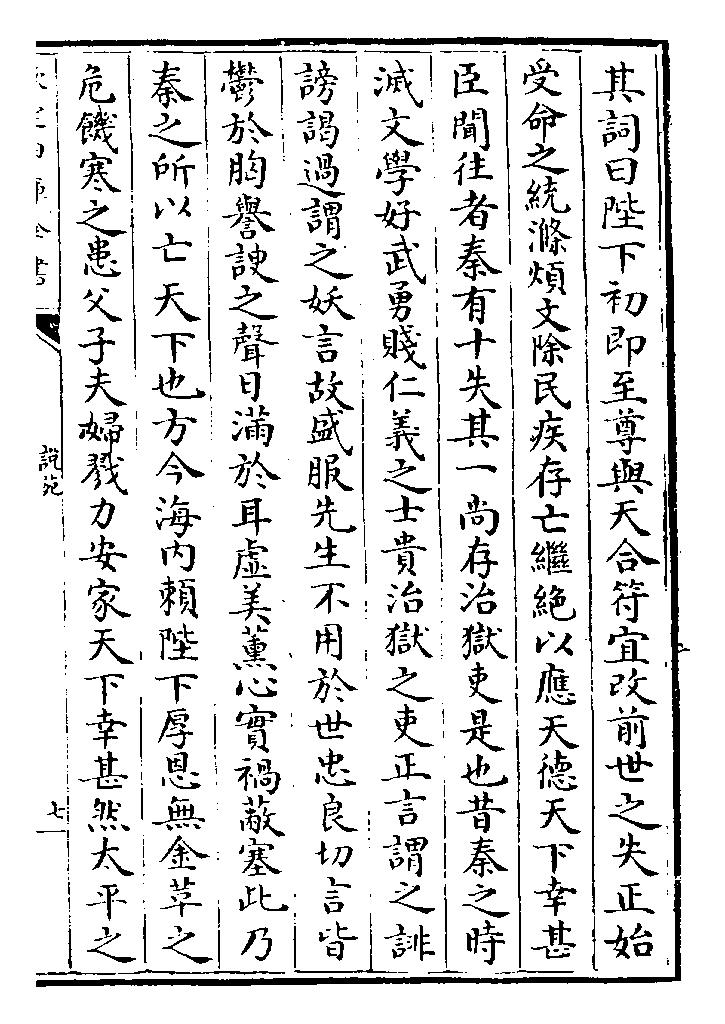 其詞曰陛下初即至尊與天合符宜改前世之失正始
受命之統滌煩文除民疾存亡繼絶以應天德天下幸甚
臣聞往者秦有十失其一尚存治獄吏是也昔秦之時
滅文學好武勇賤仁義之士貴治獄之吏正言謂之誹
謗謁過謂之妖言故盛服先生不用於世忠良切言皆
鬱於胸譽諛之聲日滿於耳虛美薰心實禍蔽塞此乃
秦之所以亡天下也方今海内頼陛下厚恩無金革之
危饑寒之患父子夫婦戮力安家天下幸甚然太平之
全書
說苑
七